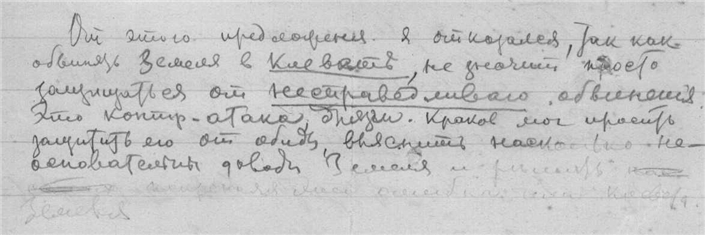 От этого предложения я отказался, так как
обвинять Земеля в клевете, не значит просто
защищаться от несправедливаго обвинения.
Это контр-атака, брязм. Краков мог просить
защитить его от обиды, выяснить наск но не-
основательны доводы Земеля и решить
ошибка
Земеля